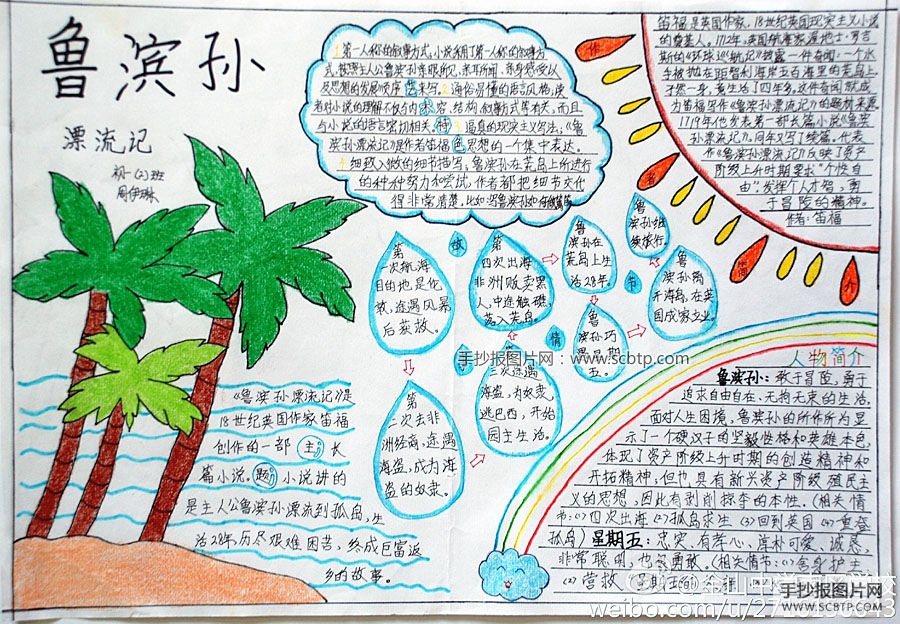 鲁滨孙
漂流记
初一(2)班
周伊琳
1.第一人称的叙事方式,小说采用了第一人称的叙事方
式,按照主人公鲁滨孙亲眼所见,亲耳所闻,亲身感受以
及思想的发展顺序艺来写。2.通俗易懂的语言风格,读
者对小说的理解不仅与内术容,结构,叙事方式等有关,而且
与小说的语言密切相关。特3.逼真的现实主义写法,《鲁
滨孙漂流记》是作者笛福色思想的一个集中表达。
4.细致入微的细节描写,鲁滨孙在荒岛上所进行
的种种努力和尝试,作者都把细节交代
得非常清楚,比如说鲁滨孙如何做
作
者
简
介
笛福是英国作家,18世纪英国现实主义小说
的奠基人。1712年,英国航海家
斯的《环球巡航记》披露一件奇闻:一个水
手被抛在距智利海岸五百海里的荒岛上,
孑然一身,竟生活了四年多,这件奇闻就成
为笛福写作《鲁滨孙漂流记》的题材来源。
1719年他发表第一部长篇小说《鲁滨
孙漂流记》。同年又写了续篇。代表
作《鲁滨孙漂流记》反映了资产
阶级上升时期要求“个性自
由”,发挥个人才智,勇
于冒险的精神。
作者:笛福
故
事
情
节
第
一次航海
目的地是伦
敦,途遇风暴
后获救。
第
二次去非
洲经商,途遇
海盗,成为海
盗的奴隶。
三次途遇
海盗,为奴隶,
逃巴西,开始
园主生活。
第
四次出海
非洲贩卖黑
人,中途触礁,
落入荒岛。
鲁
滨孙在
荒岛上生
活28年。
鲁
滨孙巧
遇星期
五。
鲁
滨孙离
开海岛,在英
国成家立业。
鲁
滨孙继
续旅行。
手抄报图片网:www.scbtp.com
《鲁滨孙漂流记》是
18世纪英国作家笛福
创作的一部 主 长
篇小说。题 小说讲的
是主人公鲁滨孙漂流到孤岛,生
活28年,历尽艰难困苦,终成巨富返
乡的故事。
人物简介
鲁滨孙:敢于冒险,勇于
追求自由自在、无拘无束的生活,
面对人生困境,鲁滨孙的所作所为显
示了一个硬汉子的坚毅性格和英雄本色,
体现了资产阶级上升时期的创造精神和
开拓精神,但也具有新兴资产阶级殖民主
义的思想,因此有剥削掠夺的本性。(相关情
节:(1)四次出海 (2)孤岛求生 (3)回到英国 (4)重登
孤岛) 星期五:忠实、有孝心、淳朴可爱、诚恳,
非常聪明,也算勇敢。(相关情节:(1)舍身护主
(2)营救
手抄报图片网
WWW.SCBTP.COM